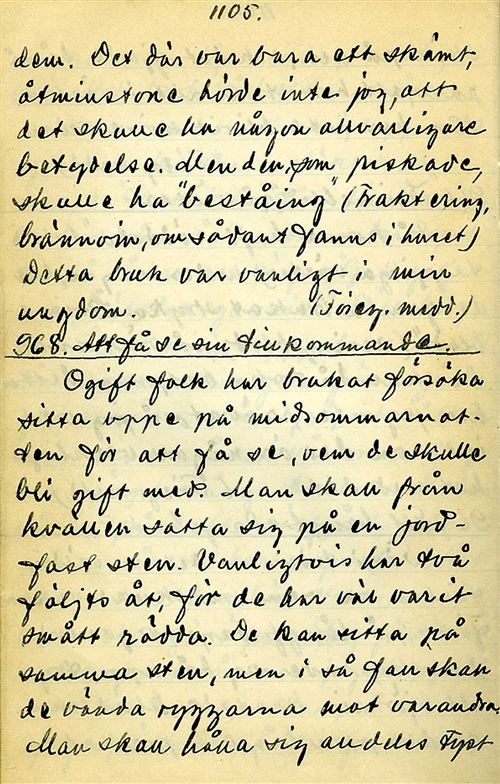 1105.
dem. Det där var bara ett skämt,
åtminstone hörde inte jag, att
det skulle ha någon allvarligare
betydelse. Men den, som piskade,
skulle ha "beståing" (Traktering,
brännvin, om sådant fanns i huset)
Detta bruk var vanligt i min
ungdom. (Föreg. medd.)
968. Att få se sin tillkommande.
Ogift folk har brukat försöka
sitta uppe på midsommarnat-
ten för att få se, vem de skulle
bli gift med. Man skall från
kvällen sätta sig på en jord-
fast sten. Vanligtvis har två
följts åt, för de har väl varit
smått rädda. De kan sitta på
samma sten, men i så fall skall
de vända ryggarna mot varandra.
Man skall hålla sig alldeles tyst